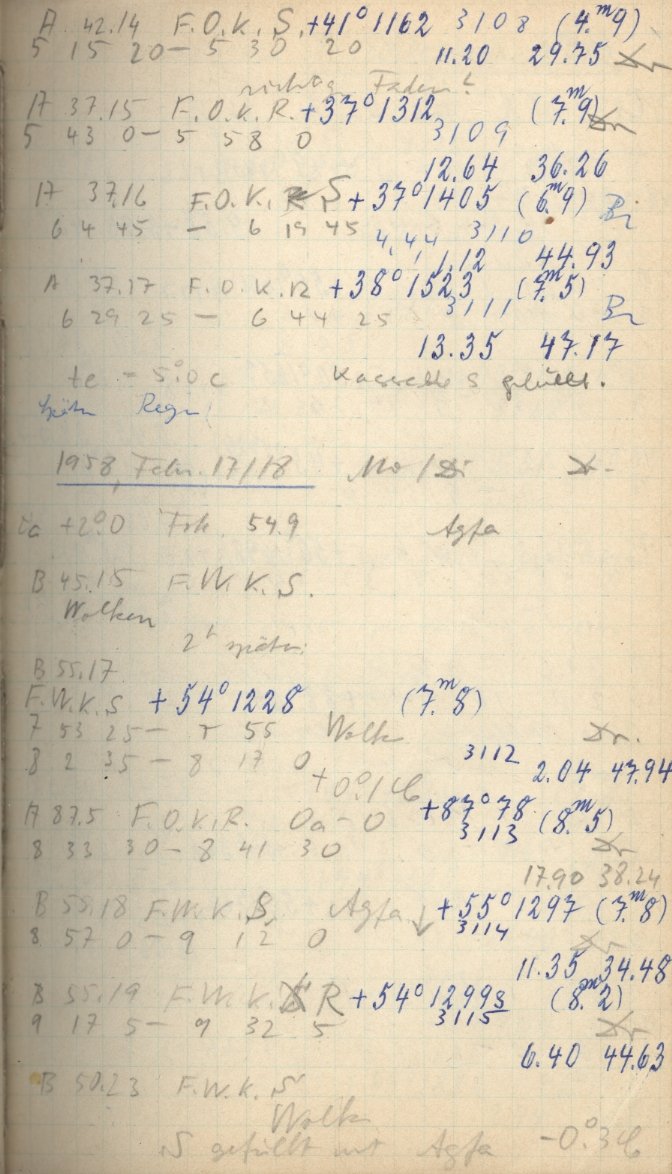 A 42.14 F.O.K. S. +41° 1162 3108 (4.ᵐ9)
5 15 20 – 5 30 20 11.20 29.75
richtig Faden?
A 37.15 F.O.K.R. +37° 1312 (7.ᵐ9)
5 43 0 – 5 58 0 3109
12.64 36.26
A 37.16 F.O.K. S +37° 1405 (6.ᵐ9)
6 4 45 – 6 19 45 3110
1.12 44.93
A 37.17 F.O.K.R +38° 1523 (7.ᵐ5)
6 29 25 – 6 44 25 3111
13.35 47.17
– 5.°0 C Kassette S gefüllt.
später Regen
1958, Febr. 17/18 Mo/Di
+2°.0 54.9 Agfa
B 45.15 F.W.K.S.
Wolken
2ʰ später
B 55.17
F.W.K.S +54° 1228 (7.ᵐ8)
7 53 25 – 55 Wolk
8 2 35 – 8 17 0 3112 2.04 47.94
+0°.1 C
A 87.5 F.O.K.R. +87° 78 (8.ᵐ5)
8 33 30 – 8 41 30 3113
17.90 38.24
B 55.18 F.W.K.S. Agfa ↓ +55° 1297 (7.ᵐ8)
8 57 0 – 9 12 0 3114
11.35 34.48
B 55.19 F.W.K. R +54° 1299s (8.ᵐ2)
9 17 5 – 9 32 5 3115
6.40 44.63
B 50.23 F.W.K.S
Wolk
S gefüllt mit Agfa -0°.3 C